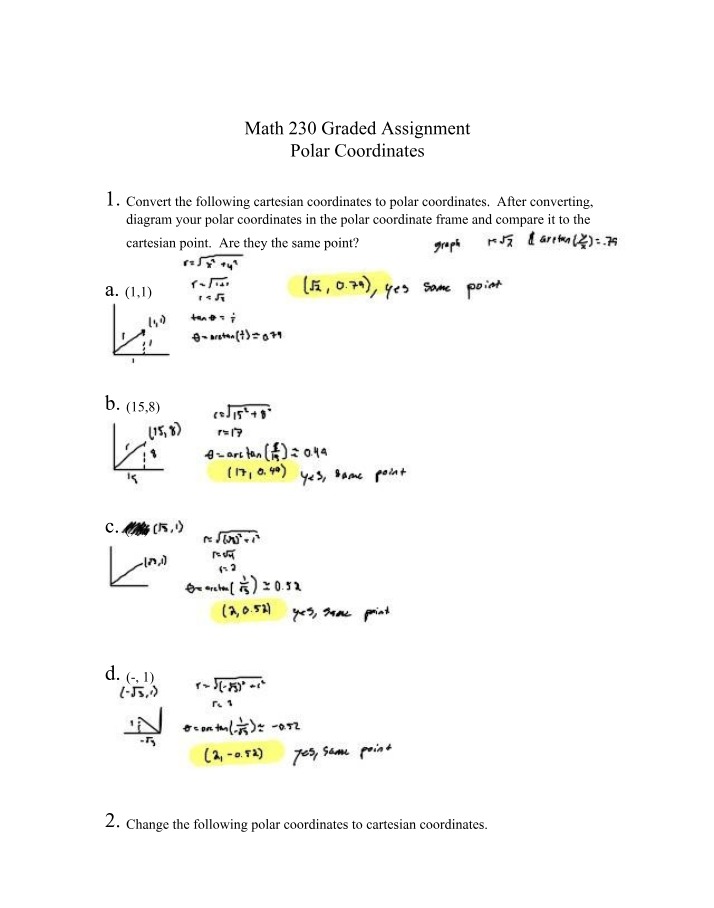 Math 230 Graded Assignment
Polar Coordinates
1. Convert the following cartesian coordinates to polar coordinates. After converting,
diagram your polar coordinates in the polar coordinate frame and compare it to the
cartesian point. Are they the same point?
graph r=√2 & arctan(y/x)=.79
r=√x²+y²
r=√1+1
r=√2
a. (1,1)
(√2, 0.79), yes same point
tan θ = 1/1
θ=arctan(1/1)≈0.79
(1,1)
r
1
1
b. (15,8)
r=√15²+8²
r=17
θ=arctan(8/15)≈0.49
(17, 0.49) yes, same point
(15,8)
r
8
15
c. (√3,1)
r=√(√3)²+1²
r=√4
r=2
(√3,1)
θ=arctan(1/√3)≈0.52
(2,0.52) yes, same point
d. (-, 1)
(-√3,1)
r=√(-√3)²+1²
r=2
1
-√3
θ=arctan(1/-√3)≈-0.52
(2,-0.52) yes, same point
2. Change the following polar coordinates to cartesian coordinates.